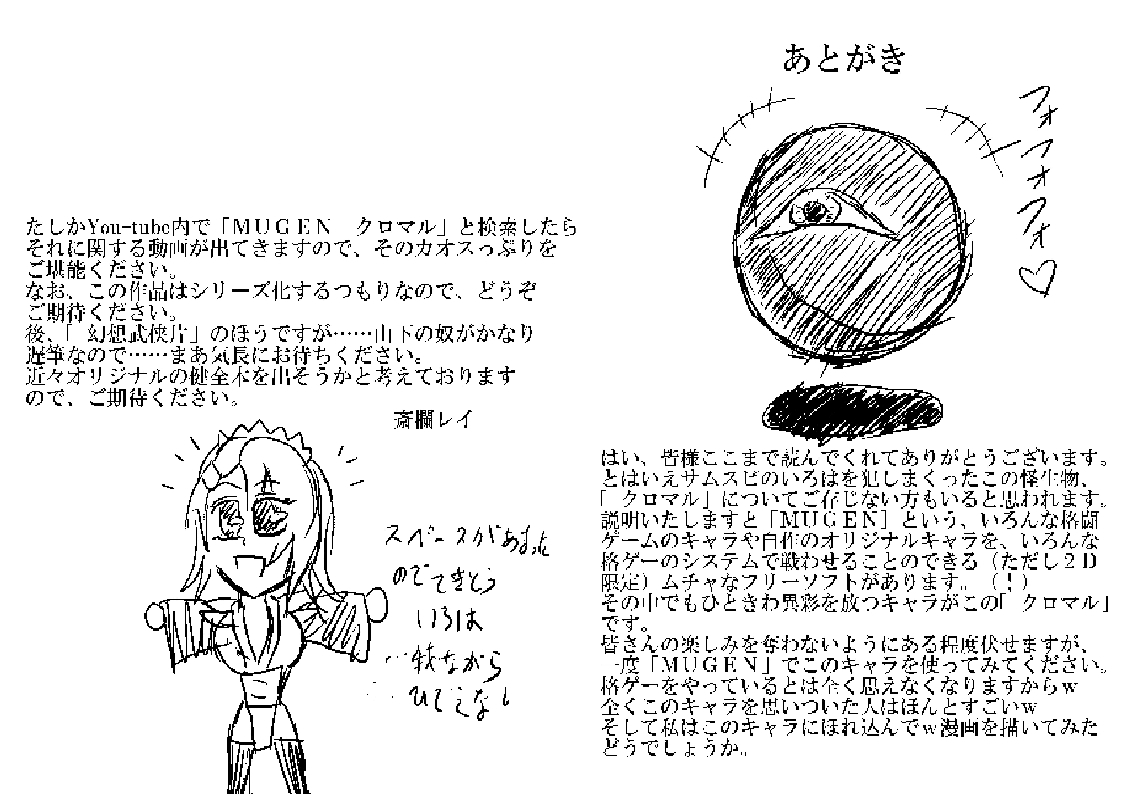 あとがき
フォフォフォ♡
はい、皆様ここまで読んでくれてありがとうございます。
とはいえサムスピのいろはを犯しまくったこの怪生物、
「クロマル」についてご存じない方もいると思われます。
説明いたしますと「MUGEN」という、いろんな格闘
ゲームのキャラや自作のオリジナルキャラを、いろんな
格ゲーのシステムで戦わせることのできる（ただし2D
限定）ムチャなフリーソフトがあります。（！）
その中でもひときわ異彩を放つキャラがこの「クロマル」
です。
皆さんの楽しみを奪わないようにある程度伏せますが、
一度「MUGEN」でこのキャラを使ってみてください。
格ゲーをやっているとは全く思えなくなりますからw
全くこのキャラを思いついた人はほんとすごいw
そして私はこのキャラにほれ込んでw漫画を描いてみた
どうでしょうか。
たしかYou-tube内で「MUGEN　クロマル」と検索したら
それに関する動画が出てきますので、そのカオスっぷりを
ご堪能ください。
なお、この作品はシリーズ化するつもりなので、どうぞ
ご期待ください。
後、「幻想武侠片」のほうですが……山下の奴がかなり
遅筆なので……まあ気長にお待ちください。
近々オリジナルの健全本を出そうかと考えております
ので、ご期待ください。
斎欄レイ
スペースがあまった
のでてきとう
いろは
…我ながら
ひでえなし